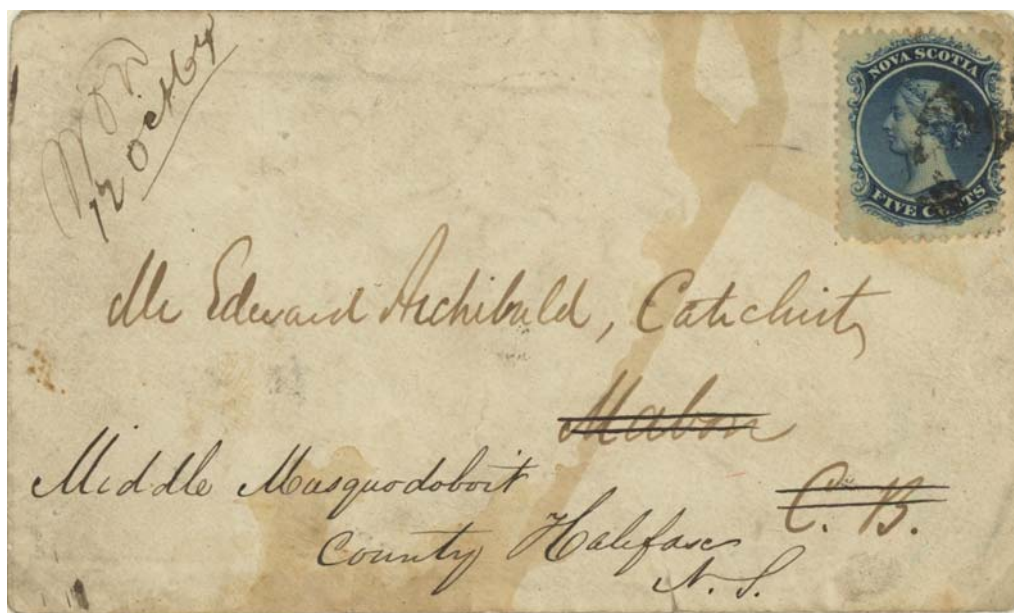 12 Oct 64
NOVA SCOTIA
FIVE CENTS
Mr Edward Archibald, Catichist,
Mabou
C. B.
Middle Musquodoboit
County Halifax
N. S.